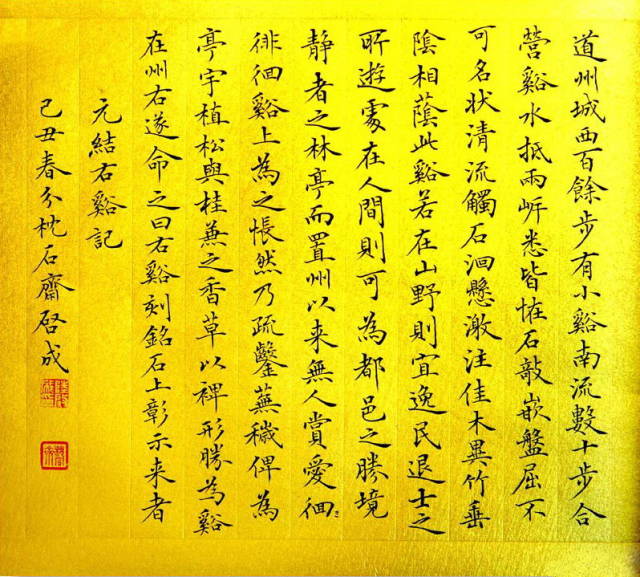 道州城西百餘步有小谿南流數十步合
營谿水抵兩岸悉皆恠石敧嵌盤屈不
可名狀清流觸石洄懸激注佳木異竹垂
陰相蔭此谿若在山野則宜逸民退士之
所遊處在人間則可為都邑之勝境
静者之林亭而置州以来無人賞愛徊
徘徊谿上為之悵然乃疏鑿蕪穢俾為
亭宇植松與桂兼之香草以裨形勝為谿
在州右遂命之曰右谿刻銘石上彰示来者
元結右谿記
己丑春分枕石齋启成